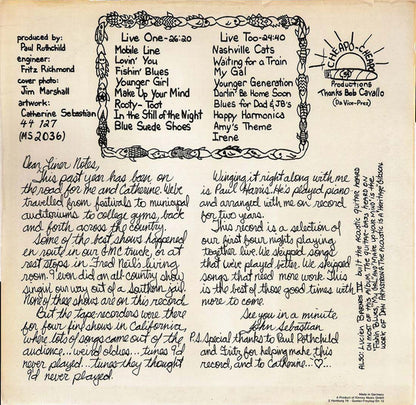 produced by:
Paul Rothchild
engineer:
Fritz Richmond
cover photo:
Jim Marshall
artwork:
Catherine Sebastian
44 127
(MS 2036)
Live One-26:20
Mobile Line
Lovin' You
Fishin' Blues
Younger Girl
Make Up Your Mind
Rooty-Toot
In the Still of the Night
Blue Suede Shoes
Live Too-24:40
Nashville Cats
Waiting for a Train
My Gal
Younger Generation
Darlin' Be Home Soon
Blues for Dad & J.B.'s
Happy Harmonica
Amy's Theme
Irene
CHEAPO-CHEAPO
Productions
Thanks Bob Cavallo
(Da Vice-Prez)
Dear Liner Notes,
This past year has been on
the road for me and Catherine. We've
travelled from festivals to municipal
auditoriums to college gyms, back
and forth across the country.
Some of the best shows happened
en route in our GMC truck, or at
rest stops in Fred Neil's living
room. I even did an all-country show
singin' our way out of a Southern jail.
None of these shows are on this record.
But the tape recorders were there
for four fine shows in California,
where lots of songs came out of the
audience... weird oldies... tunes I'd
never played... tunes they thought
I'd never played.
Winging it right along with me
is Paul Harris. He's played piano
and arranged with me on record
for two years.
This record is a selection of
our first four nights playing
together live. We skipped songs
that we've played tighter. We skipped
songs that need more work. This
is the best of those good times with
more to come.
See you in a minute,
John Sebastian
P.S. Special thanks to Paul Rothchild
and Fritz, for helping make this
record, and to Catherine...♡...
ALSO: Lucien Barnes IV built the acoustic guitar heard
on most of side
work of Dan Armstrong. The acoustic is a Heritage Gibson.
Made in Germany